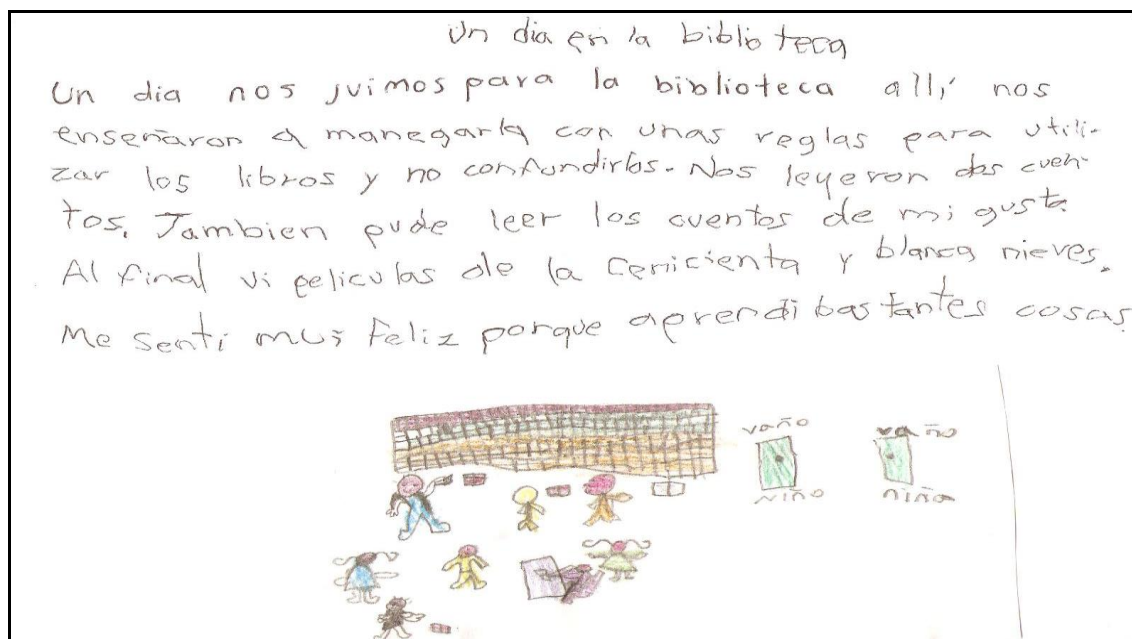 Un dia en la biblioteca
Un dia nos juimos para la biblioteca allí nos
enseñaron a manegarla con unas reglas para utili-
zar los libros y no confundirlos. Nos leyeron dos cuen-
tos. Tambien pude leer los cuentos de mi gusto.
Al final vi peliculas de la Cenicienta y blanca nieves.
Me sentí muy feliz porque aprendi bastantes cosas
vaño vaño
niño niña